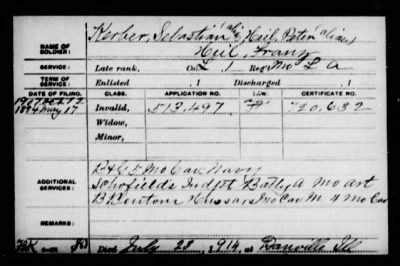 Kerber, Sebastian alias Heil, Peter alias
NAME OF SOLDIER: Heil, Franz
SERVICE: Late rank, Co. L, 1 Reg't Mo L A
TERM OF SERVICE: Enlisted , 1 Discharged , 1
DATE OF FILING. CLASS. APPLICATION NO. LAW. CERTIFICATE NO.
1894 May 17 Invalid, 513,497 720,632
Widow,
Minor,
ADDITIONAL SERVICES: 5 Mo Cav. Navy
Schofields Indpt Batty A Mo Art
B Bentons Hussars Mo Cav M 4 Mo Cav
REMARKS:
Died July 28, 1914, at Danville Ill